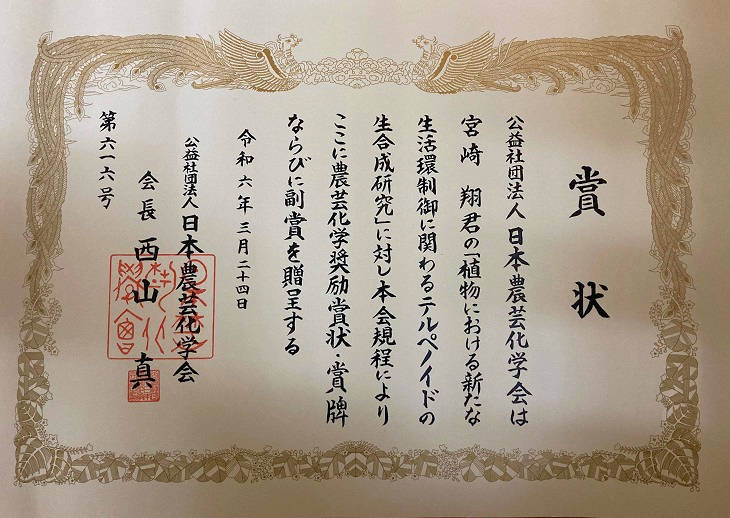 賞状
公益社団法人 日本農芸化学会は
宮崎 翔君の「植物における新たな
生活環制御に関わるテルペノイドの
生合成研究」に対し本会規程により
ここに農芸化学奨励賞状・賞牌
ならびに副賞を贈呈する
令和六年三月二十四日
公益社団法人 日本農芸化学会
会長 西山 真
第六一六号